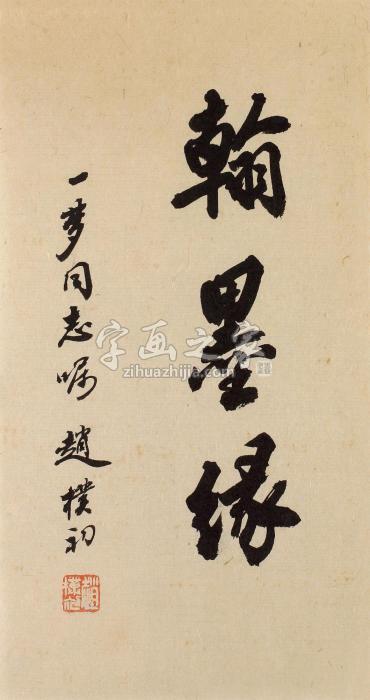 翰墨缘
一梦同志嘱 趙樸初
趙樸初
字画之家
zihuazhijia.com